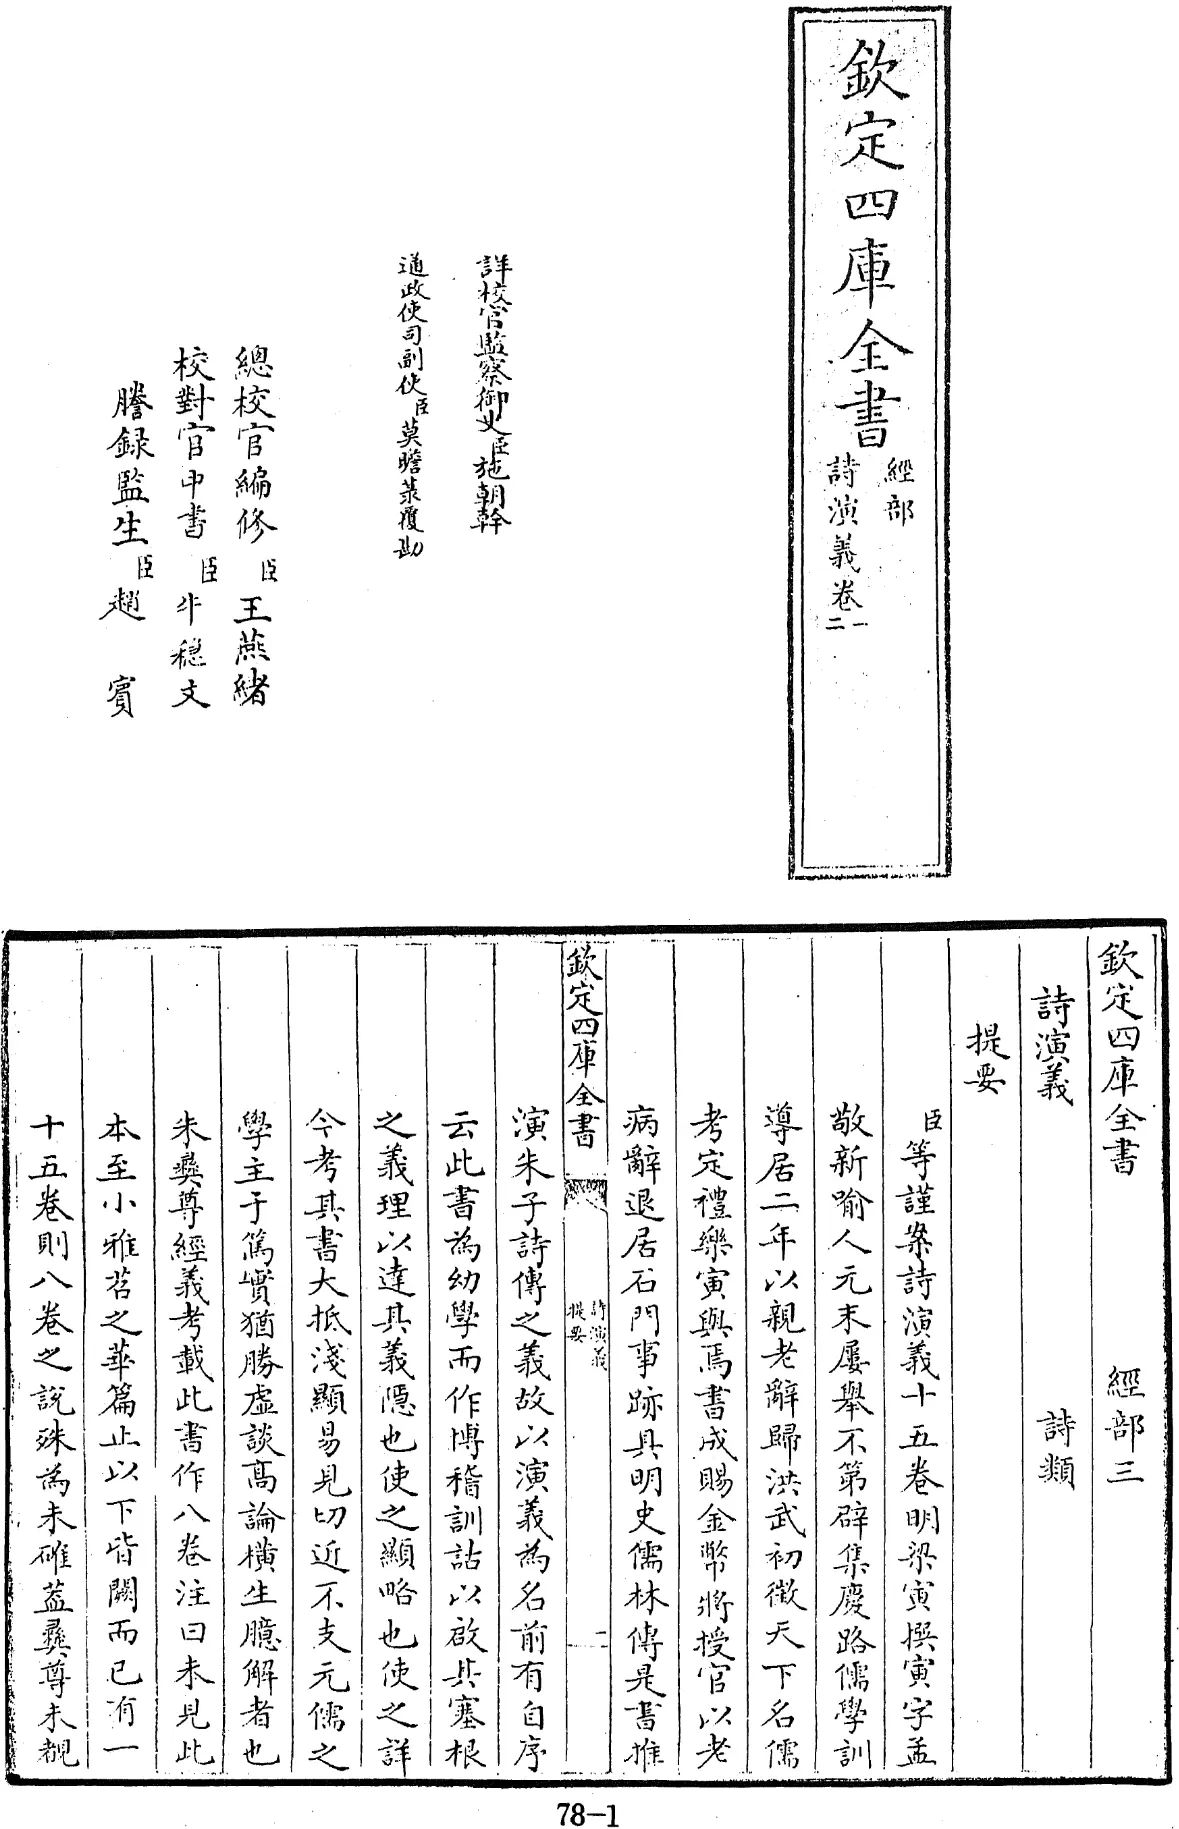 欽定四庫全書
經部
詩演義卷一
二
詳校官監察御史臣施朝幹
通政使司副使臣莫瞻菉覆勘
總校官編修臣王燕緒
校對官中書臣牛稔文
謄録監生臣趙賓
欽定四庫全書 經部三
詩演義 詩類
提要
臣等謹案詩演義十五卷明梁寅撰寅字孟
敬新喻人元末屢舉不第辟集慶路儒學訓
導居二年以親老辭歸洪武初徵天下名儒
考定禮樂寅與焉書成賜金幣將授官以老
病辭退居石門事跡具明史儒林傳是書推
欽定四庫全書
詩演義
提要
一
演朱子詩傳之義故以演義為名前有自序
云此書為幼學而作博稽訓詁以啟其塞根
之義理以達其義隱也使之顯略也使之詳
今考其書大抵淺顯易見切近不支元儒之
學主于篤實猶勝虛談髙論橫生臆解者也
朱彝尊經義考載此書作八卷注曰未見此
本至小雅苕之華篇止以下皆闕而已有一
十五卷則八卷之說殊為未確葢彝尊未覩
78-1